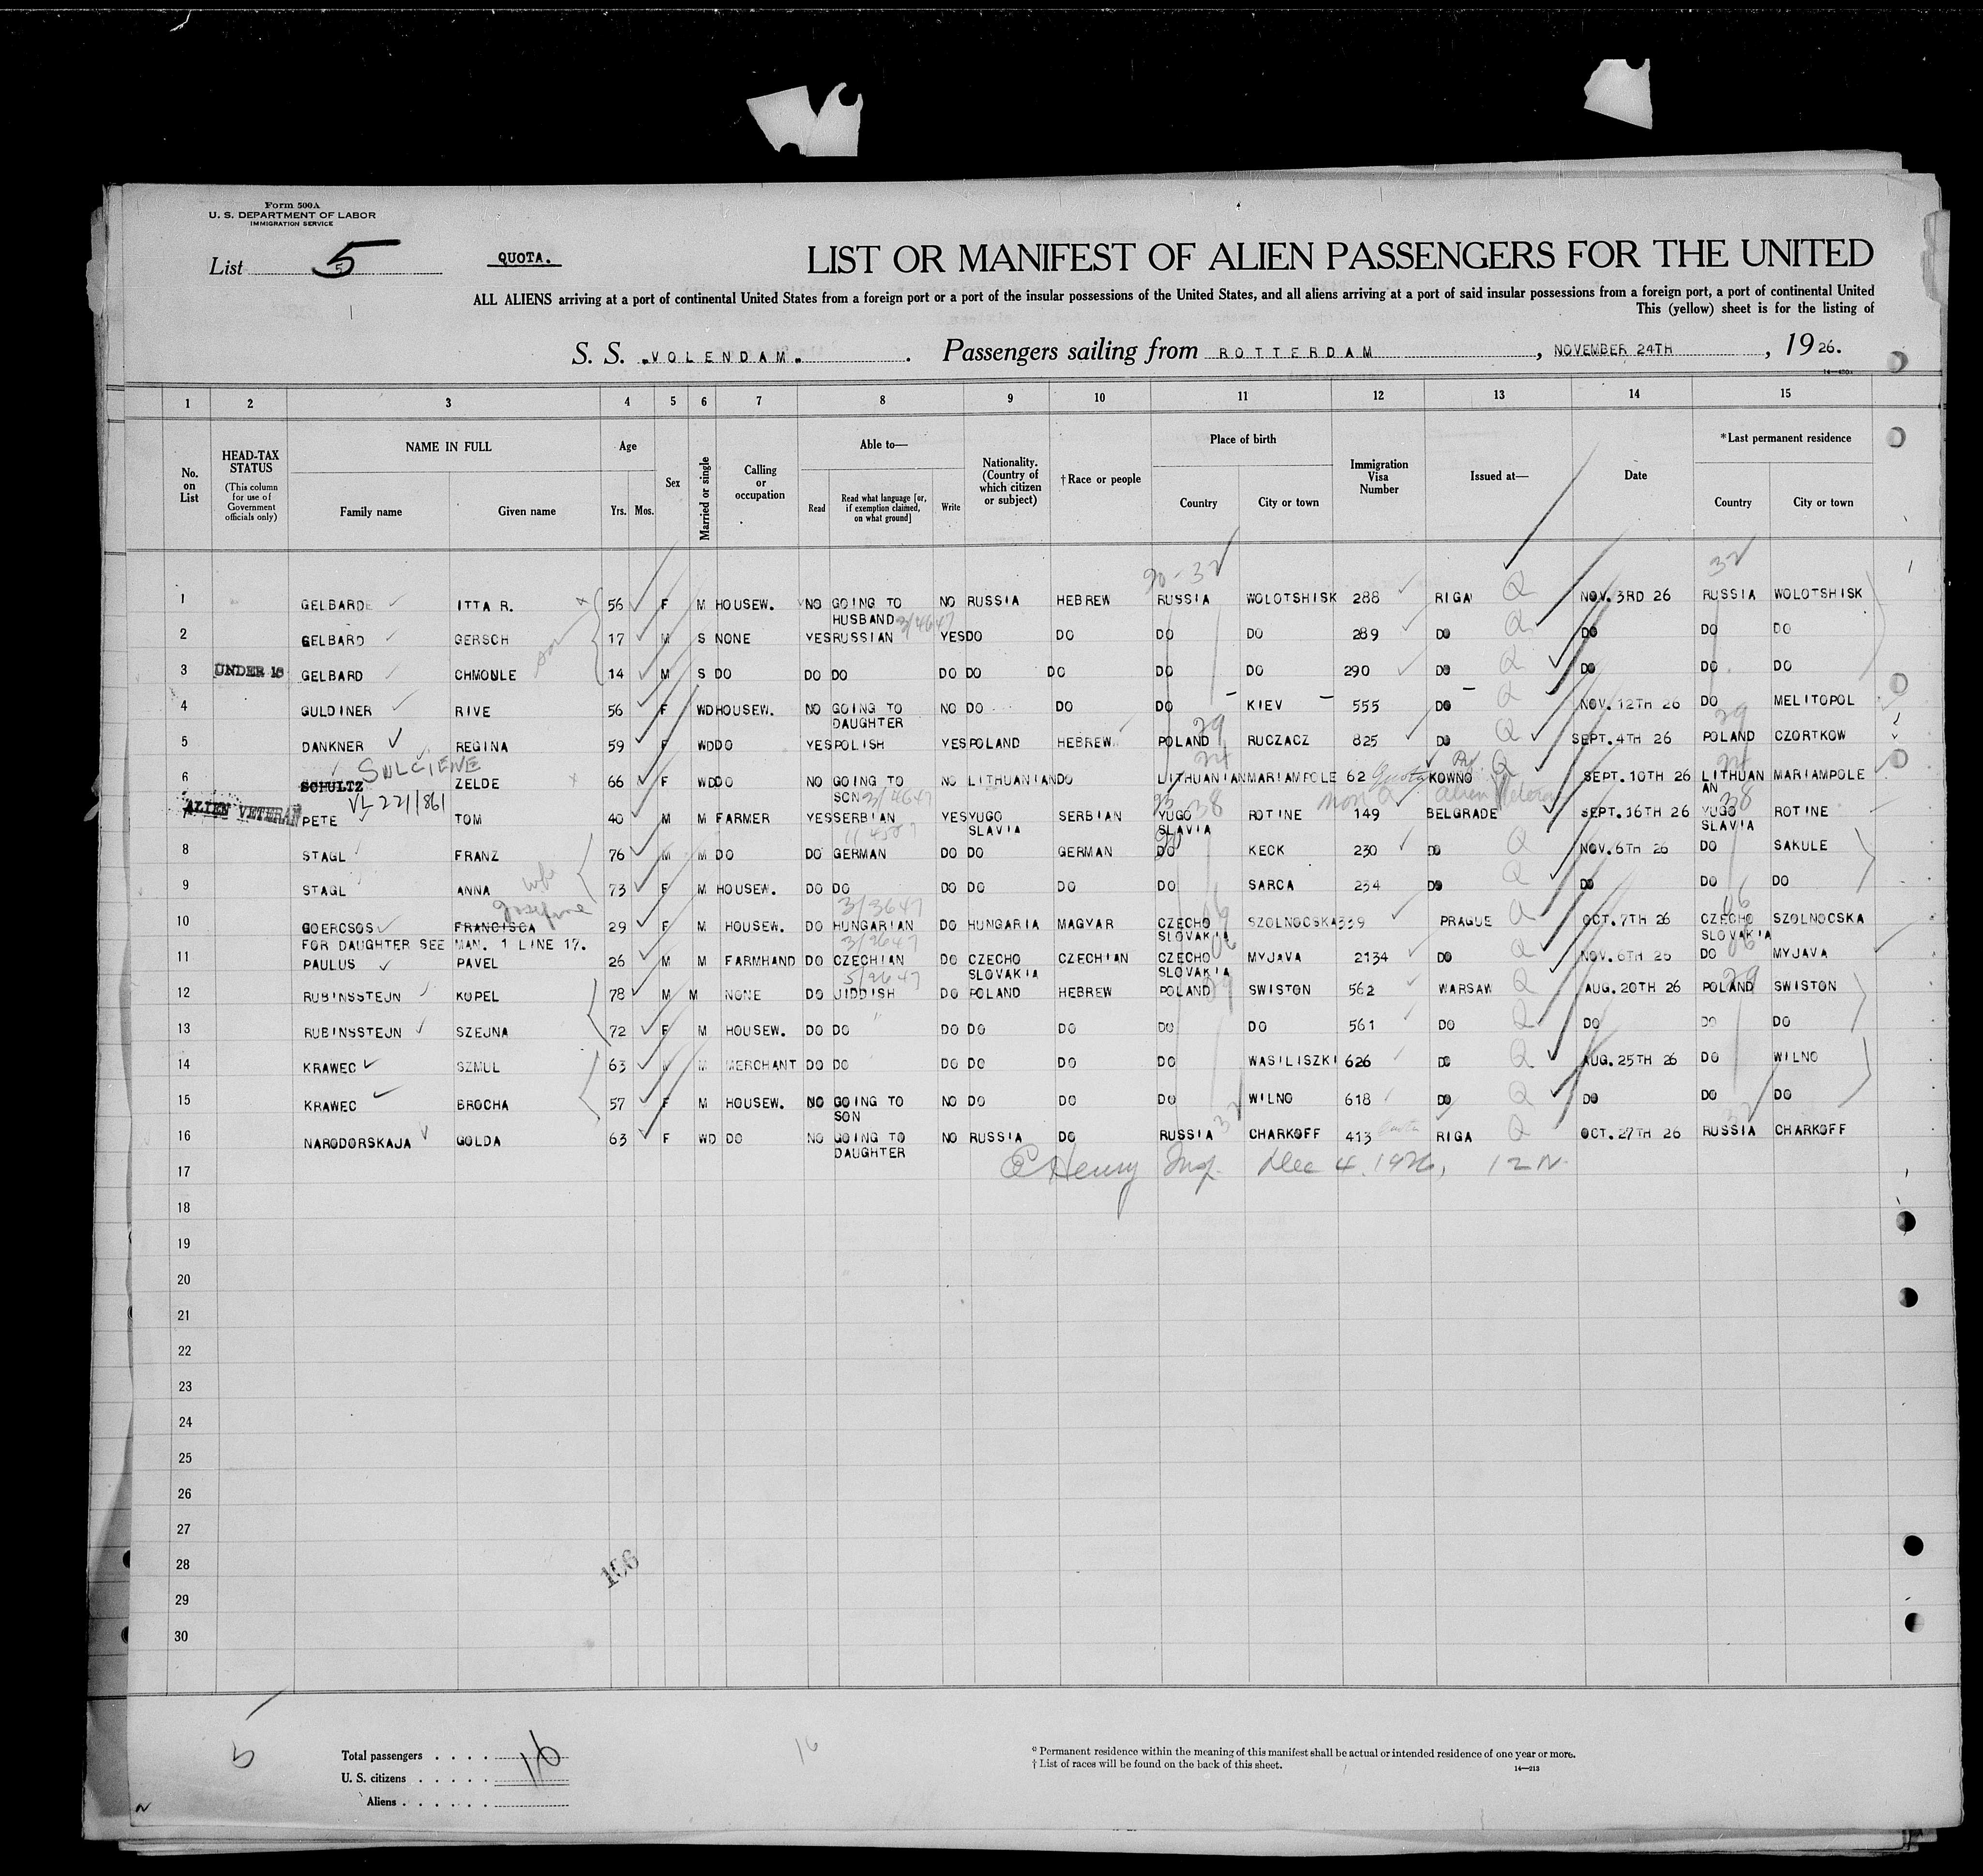 Form 500A
U. S. DEPARTMENT OF LABOR
IMMIGRATION SERVICE
List 5
QUOTA.
LIST OR MANIFEST OF ALIEN PASSENGERS FOR THE UNITED
ALL ALIENS arriving at a port of continental United States from a foreign port or a port of the insular possessions of the United States, and all aliens arriving at a port of said insular possessions from a foreign port, a port of continental United
This (yellow) sheet is for the listing of
S. S. VOLENDAM. Passengers sailing from ROTTERDAM, NOVEMBER 24TH, 1926.
1 2 3 4 5 6 7 8 9 10 11 12 13 14 15
No. on List
HEAD-TAX STATUS (This column for use of Government officials only)
NAME IN FULL
Family name Given name
Age
Yrs. Mos.
Sex
Married or single
Calling or occupation
Able to—
Read Read what language [or, if exemption claimed, on what ground] Write
Nationality. (Country of which citizen or subject)
†Race or people
Place of birth
Country City or town
Immigration Visa Number
Issued at—
Date
*Last permanent residence
Country City or town
20-32 32
1 GELBARDE ITTA R. 56 F M HOUSEW. NO GOING TO HUSBAND NO RUSSIA HEBREW RUSSIA WOLOTSHISK 288 RIGA Q NOV. 3RD 26 RUSSIA WOLOTSHISK
2 GELBARD GERSCH 17 M S NONE YES RUSSIAN YES DO DO DO DO 289 DO Q DO DO DO
3 UNDER 16 GELBARD CHMOULE 14 M S DO DO DO DO DO DO DO DO 290 DO Q DO DO DO
4 GULDINER RIVE 56 F WD HOUSEW. NO GOING TO DAUGHTER NO DO DO DO KIEV 555 DO Q NOV. 12TH 26 DO MELITOPOL
5 DANKNER REGINA 59 F WD DO YES POLISH YES POLAND HEBREW POLAND RUCZACZ 825 DO Q SEPT. 4TH 26 POLAND CZORTKOW
SULCIENE
6 SCHULTZ ZELDE 66 F WD DO NO GOING TO SON NO LITHUANIAN DO LITHUANIAN MARIAMPOLE 62 Quota KOWNO Q SEPT. 10TH 26 LITHUAN AN MARIAMPOLE
VL 221/861
ALIEN VETERAN
7 PETE TOM 40 M M FARMER YES SERBIAN YES YUGO SLAVIA SERBIAN YUGO SLAVIA ROTINE 149 BELGRADE SEPT. 16TH 26 YUGO SLAVIA ROTINE
8 STAGL FRANZ 76 M M DO DO GERMAN DO DO GERMAN DO KECK 230 DO Q NOV. 6TH 26 DO SAKULE
9 STAGL ANNA wife 73 F M HOUSEW. DO DO DO DO DO DO SARCA 234 DO Q DO DO DO
Josefine
10 GOERCSOS FRANCISCA 29 F M HOUSEW. DO HUNGARIAN DO HUNGARIA MAGYAR CZECHO SLOVAKIA SZOLNOCSKA 339 PRAGUE Q OCT. 7TH 26 CZECHO SLOVAKIA SZOLNOCSKA
FOR DAUGHTER SEE MAN. 1 LINE 17.
11 PAULUS PAVEL 26 M M FARMHAND DO CZECHIAN DO CZECHO SLOVAKIA CZECHIAN CZECHO SLOVAKIA MYJAVA 2134 DO Q NOV. 6TH 26 DO MYJAVA
12 RUBINSSTEJN KOPEL 78 M M NONE DO JIDDISH DO POLAND HEBREW POLAND SWISTON 562 WARSAW Q AUG. 20TH 26 POLAND SWISTON
13 RUBINSSTEJN SZEJNA 72 F M HOUSEW. DO DO DO DO DO DO DO 561 DO Q DO DO DO
14 KRAWEC SZMUL 63 M M MERCHANT DO DO DO DO DO DO WASILISZKI 626 DO Q AUG. 25TH 26 DO WILNO
15 KRAWEC BROCHA 57 F M HOUSEW. NO GOING TO SON NO DO DO DO WILNO 618 DO Q DO DO DO
16 NARODORSKAJA GOLDA 63 F WD DO NO GOING TO DAUGHTER NO RUSSIA DO RUSSIA CHARKOFF 413 RIGA Q OCT. 27TH 26 RUSSIA CHARKOFF
17 Henry Insp. Dec 4, 1926, 12 N.
18
19
20
21
22
23
24
25
26
27
28
29
30
5
Total passengers . . . . 16
U. S. citizens . . . . .
Aliens . . . . . .
16
* Permanent residence within the meaning of this manifest shall be actual or intended residence of one year or more.
† List of races will be found on the back of this sheet.
14—213